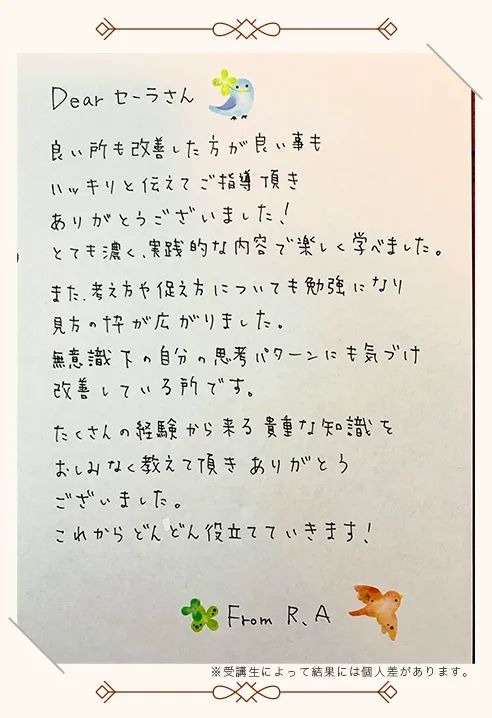 Dear セーラさん
良い所も改善した方が良い事も
ハッキリと伝えてご指導頂き
ありがとうございました!
とても濃く、実践的な内容で楽しく学べました。
また、考え方や捉え方についても勉強になり
見方の枠が広がりました。
無意識下の自分の思考パターンにも気づけ
改善している所です。
たくさんの経験から来る貴重な知識を
おしみなく教えて頂き ありがとう
ございました。
これからどんどん役立てていきます!
From R、A
※受講生によって結果には個人差があります。